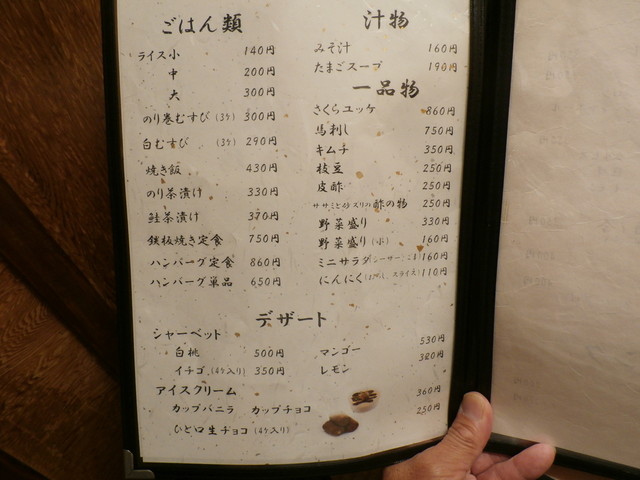 ごはん類
ライス小 140円
中 200円
大 300円
のり巻むすび(3ケ) 300円
白むすび (3ケ) 290円
焼き飯 430円
のり茶漬け 330円
鮭茶漬け 370円
鉄板焼き定食 750円
ハンバーグ定食 860円
ハンバーグ単品 650円
汁物
みそ汁 160円
たまごスープ 190円
一品物
さくらユッケ 860円
馬刺し 750円
キムチ 350円
枝豆 250円
皮酢 250円
酢の物 250円
野菜盛り 330円
野菜盛り(小) 160円
ミニサラダ 160円
にんにく 110円
デザート
シャーベット
白桃 500円
イチゴ(4ケ入り) 350円
マンゴー 530円
レモン 380円
アイスクリーム
カップバニラ カップチョコ 360円
ひと口生チョコ(4ケ入り) 250円